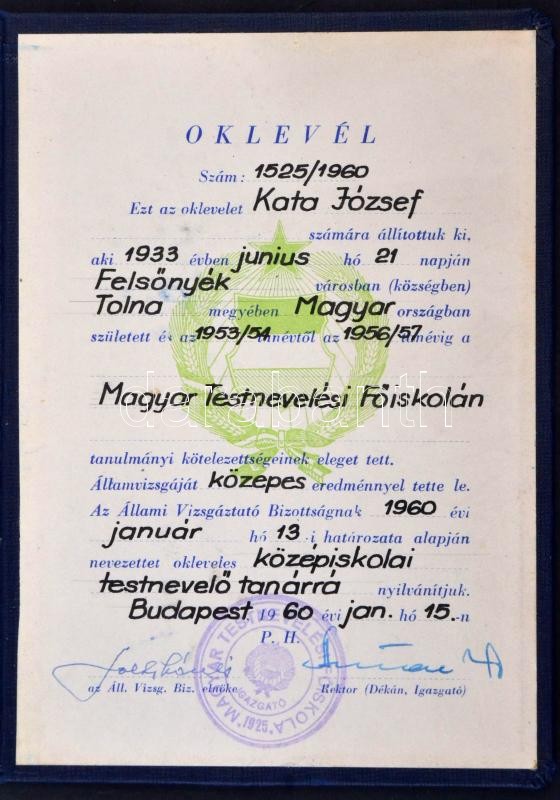 OKLEVÉL
Szám: 1525/1960
Ezt az oklevelet Kata József
számára állítottuk ki,
aki 1933 évben junius hó 21 napján
Felsőnyék városban (községben)
Tolna megyében Magyar országban
született és az 1953/54 tanévtől az 1956/57 tanévig a
Magyar Testnevelési Főiskolán
tanulmányi kötelezettségeinek eleget tett.
Államvizsgáját közepes eredménnyel tette le.
Az Állami Vizsgáztató Bizottságnak 1960 évi
január hó 13-i határozata alapján
nevezettet okleveles középiskolai
testnevelő tanárrá nyilvánítjuk.
Budapest, 1960 évi jan. hó 15.-n
P. H.
az Áll. Vizsg. Biz. elnöke Rektor (Dékán, Igazgató)
MAGYAR TESTNEVELÉSI FŐISKOLA
IGAZGATÓ
1925